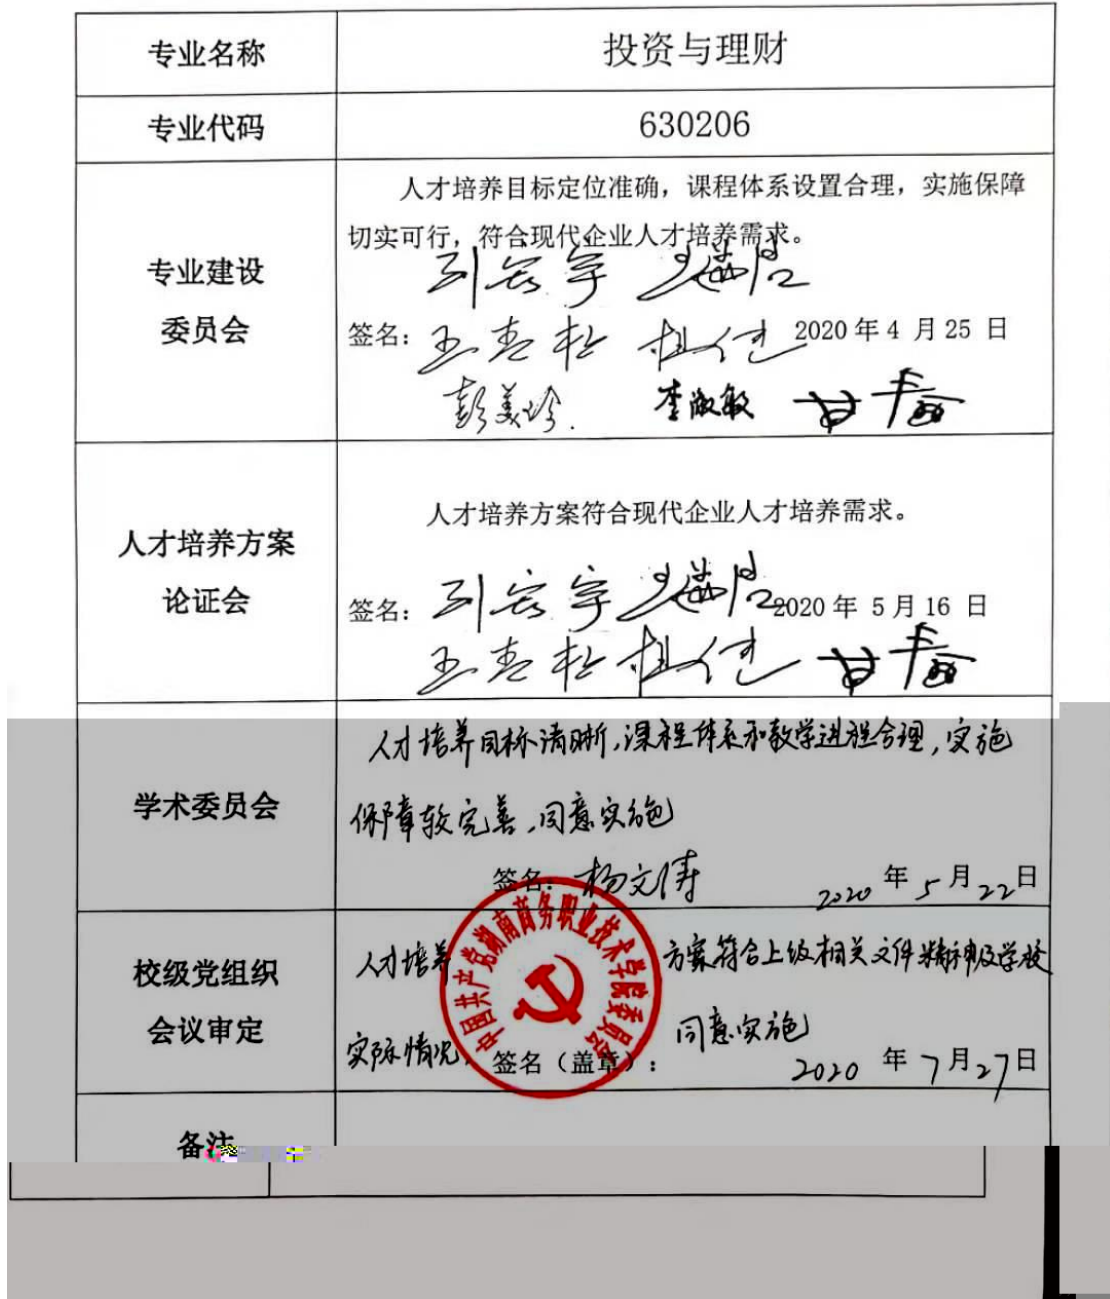 专业名称
投资与理财
专业代码
630206
专业建设
委员会
人才培养目标定位准确，课程体系设置合理，实施保障
切实可行，符合现代企业人才培养需求。
签名：
2020 年 4 月 25 日
彭美玲.
李淑敏
人才培养方案
论证会
人才培养方案符合现代企业人才培养需求。
签名：
2020 年 5 月 16 日
学术委员会
人才培养目标清晰，课程体系和教学进程合理，实施
保障较完善，同意实施
签名：杨文涛 2020 年 5 月 22 日
校级党组织
会议审定
人才培养方案符合上级相关文件精神及学校
实际情况， 同意实施
签名（盖章）： 2020 年 7 月 27 日
中国共产党湖南商务职业技术学院委员会
备注